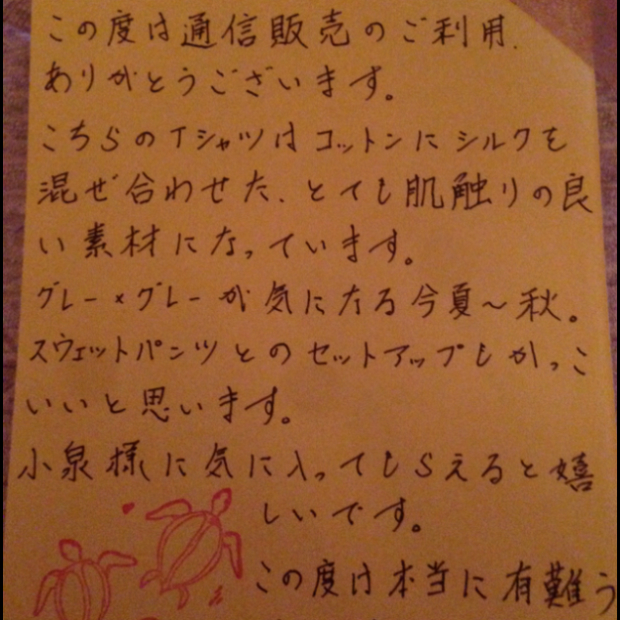 この度は通信販売のご利用、
ありがとうございます。
こちらのTシャツはコットンにシルクを
混ぜ合わせた、とても肌触りの良
い素材になっています。
グレー×グレーが気になる今夏~秋。
スウェットパンツとのセットアップもかっこ
いいと思います。
小泉様に気に入ってもらえると嬉
しいです。
この度は本当に有難う